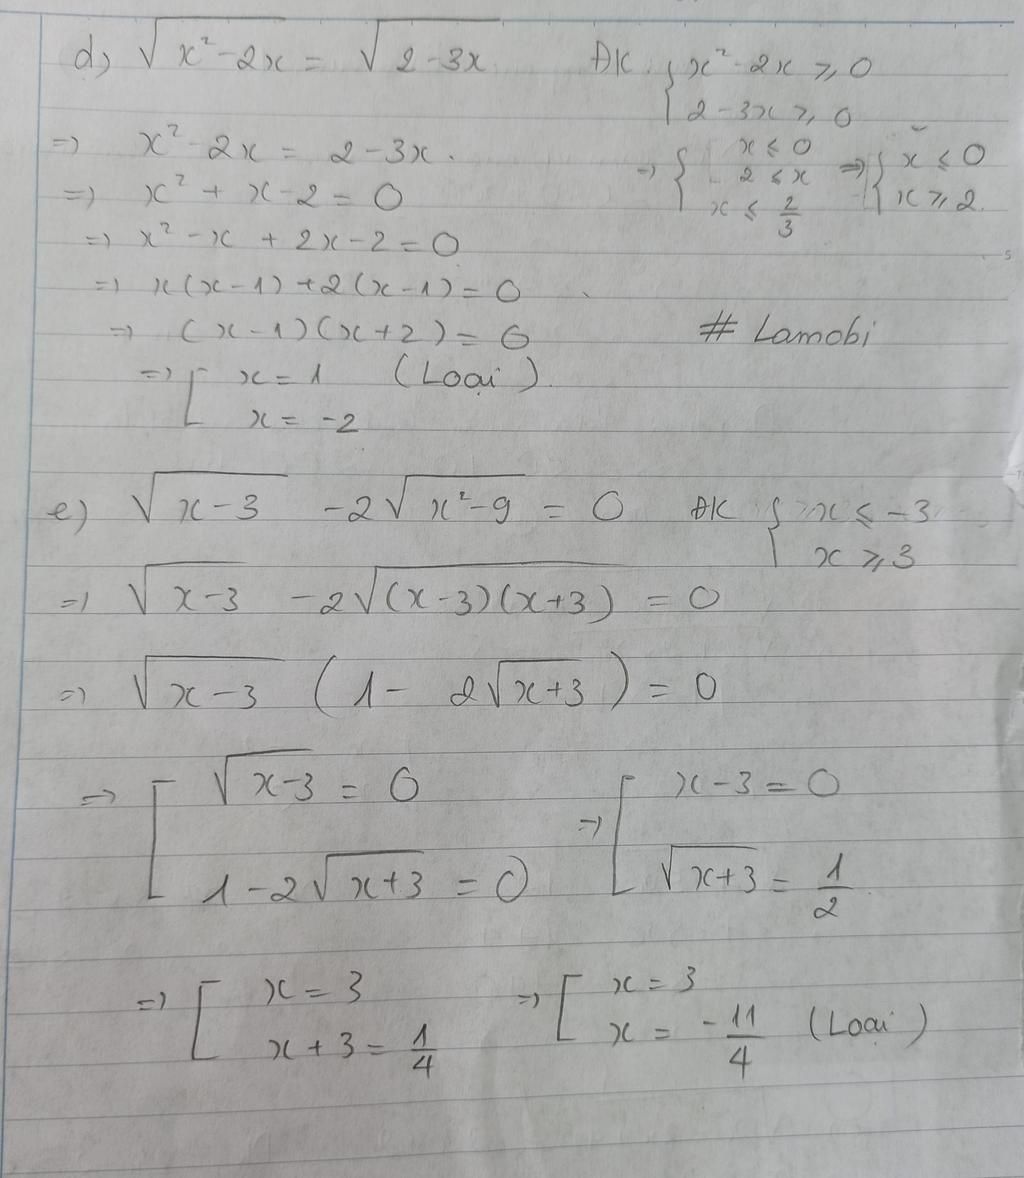 d) √(x²-2x) = √(2-3x) ĐK: { x²-2x ⩾ 0
2-3x ⩾ 0
=> x²-2x = 2-3x. => { x ⩽ 0 => { x ⩽ 0
2 ⩽ x x ⩾ 2
x ⩽ 2/3
=> x² + x-2 = 0
=> x²-x + 2x-2=0
=> x(x-1)+2(x-1)=0
=> (x-1)(x+2)=0 # Lamobi
=> [ x=1 (Loại)
x = -2
e) √(x-3) -2√(x²-9) = 0 ĐK { x ⩽ -3
x ⩾ 3
=> √(x-3) -2√((x-3)(x+3)) = 0
=> √(x-3) (1- 2√(x+3)) = 0
=> [ √(x-3) = 0 => [ x-3=0
1-2√(x+3) = 0 √(x+3) = 1/2
=> [ x=3 => [ x=3
x+3= 1/4 x = -11/4 (Loại)